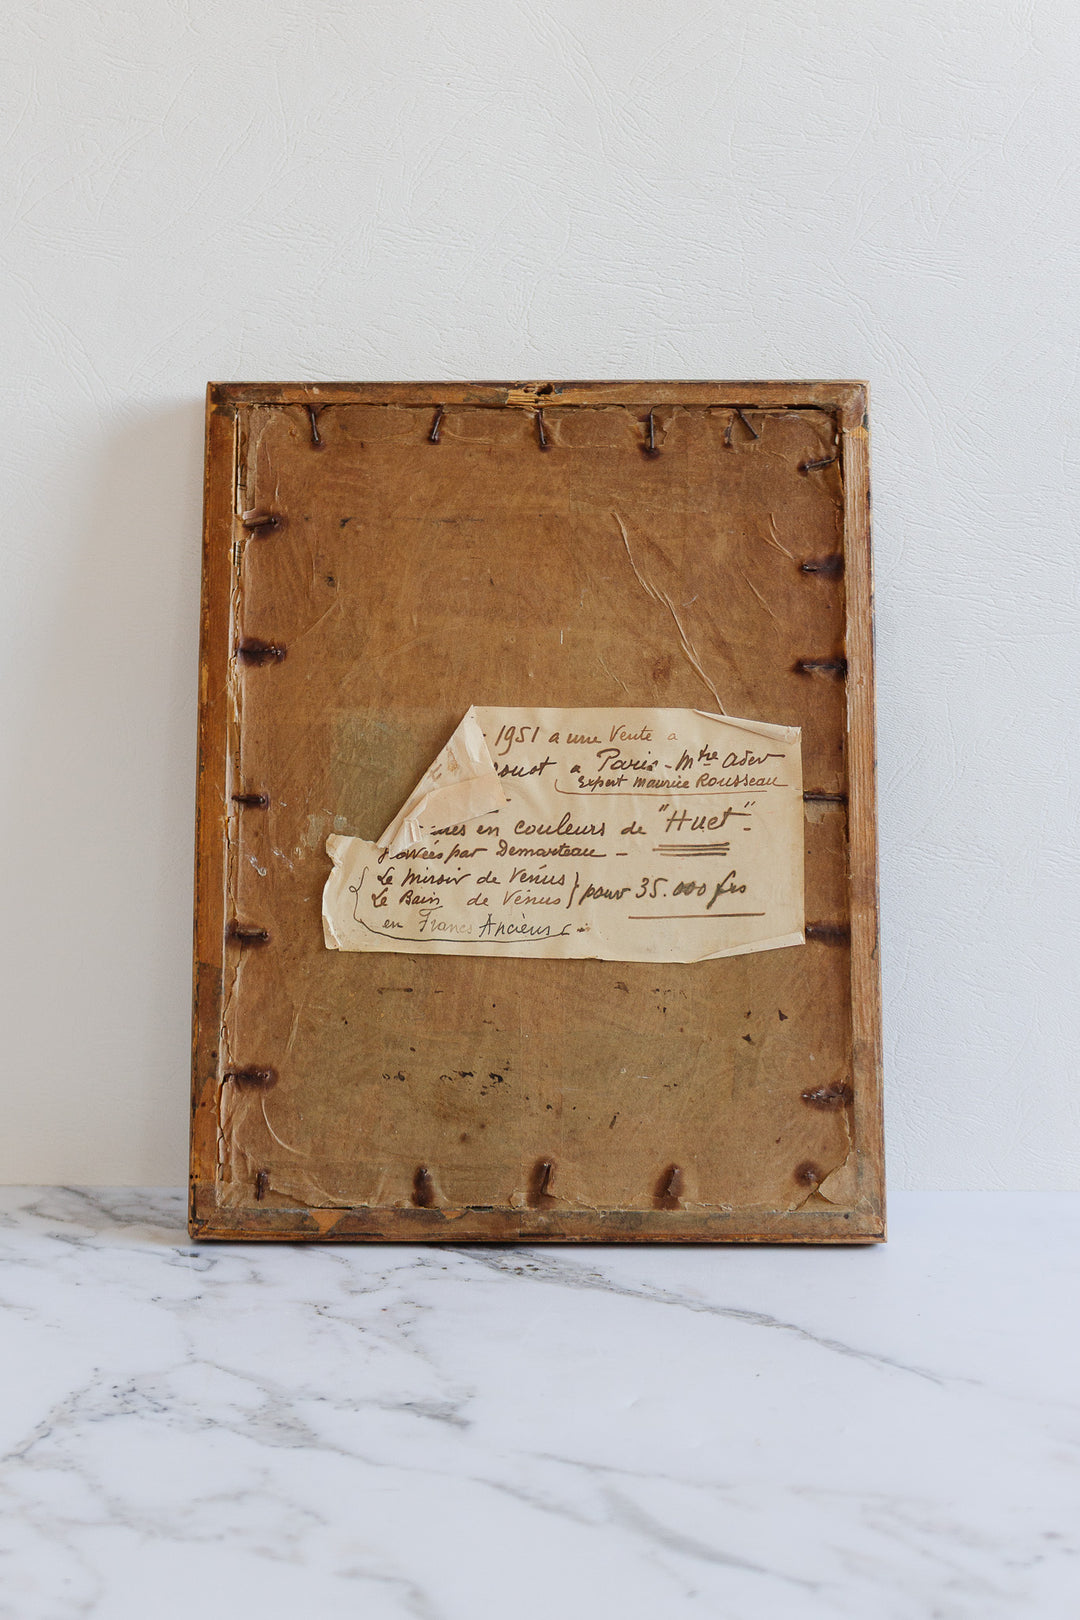 1951 a une Vente a
a Paris - Mtre Ader
Expert Maurice Rousseau
en couleurs de "Huet" -
par Demarteau -
Le Miroir de Vénus
Le Bain de Vénus } pour 35.000 frs
en Francs Anciens